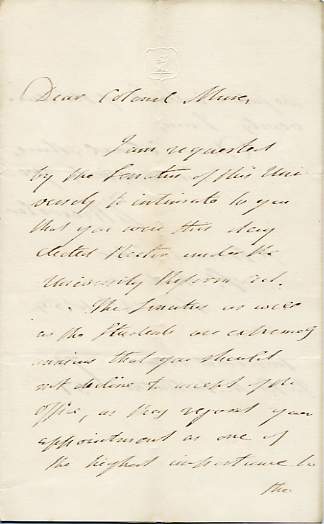 Dear Colonel Mure,
I am requested
by the Senatus of this Uni
versity to intimate to you
that you were this day
elected Rector under the
University Reform Act.
The Senatus as well
as the Students are extremely
anxious that you should
not decline to accept of the
office, as they regard your
appointment as one of
the highest importance to
the